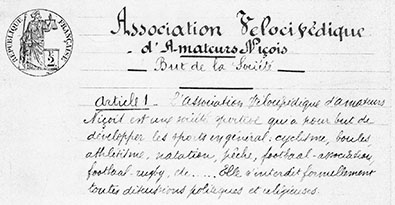 RÉPUBLIQUE FRANÇAISE
2
Association Vélocipédique
d'Amateurs Niçois
But de la Société
Article 1 _ L'Association Vélocipédique d'amateurs
Niçois est une société sportive qui a pour but de
développer les sports en général: cyclisme, boules,
athlétisme, natation, pêche, football-association,
football-rugby, etc..... Elle s'interdit formellement
toutes discussions politiques et religieuses.